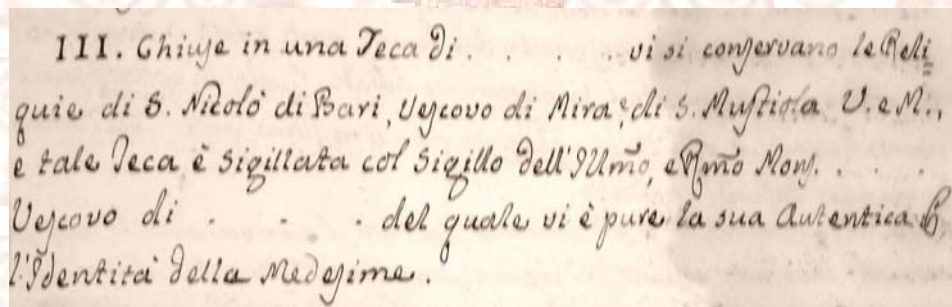 III. Chiuse in una Teca di . . . . . vi si conservano le Reli
quie di S. Nicolò di Bari, Vescovo di Mira, e di S. Mustiola V. e M.,
e tale Teca è Sigillata col Sigillo dell'Illmo, e Rmo Mons. . . .
Vescovo di . . . del quale vi è pure la sua Autentica
l'Identità della Medesime.